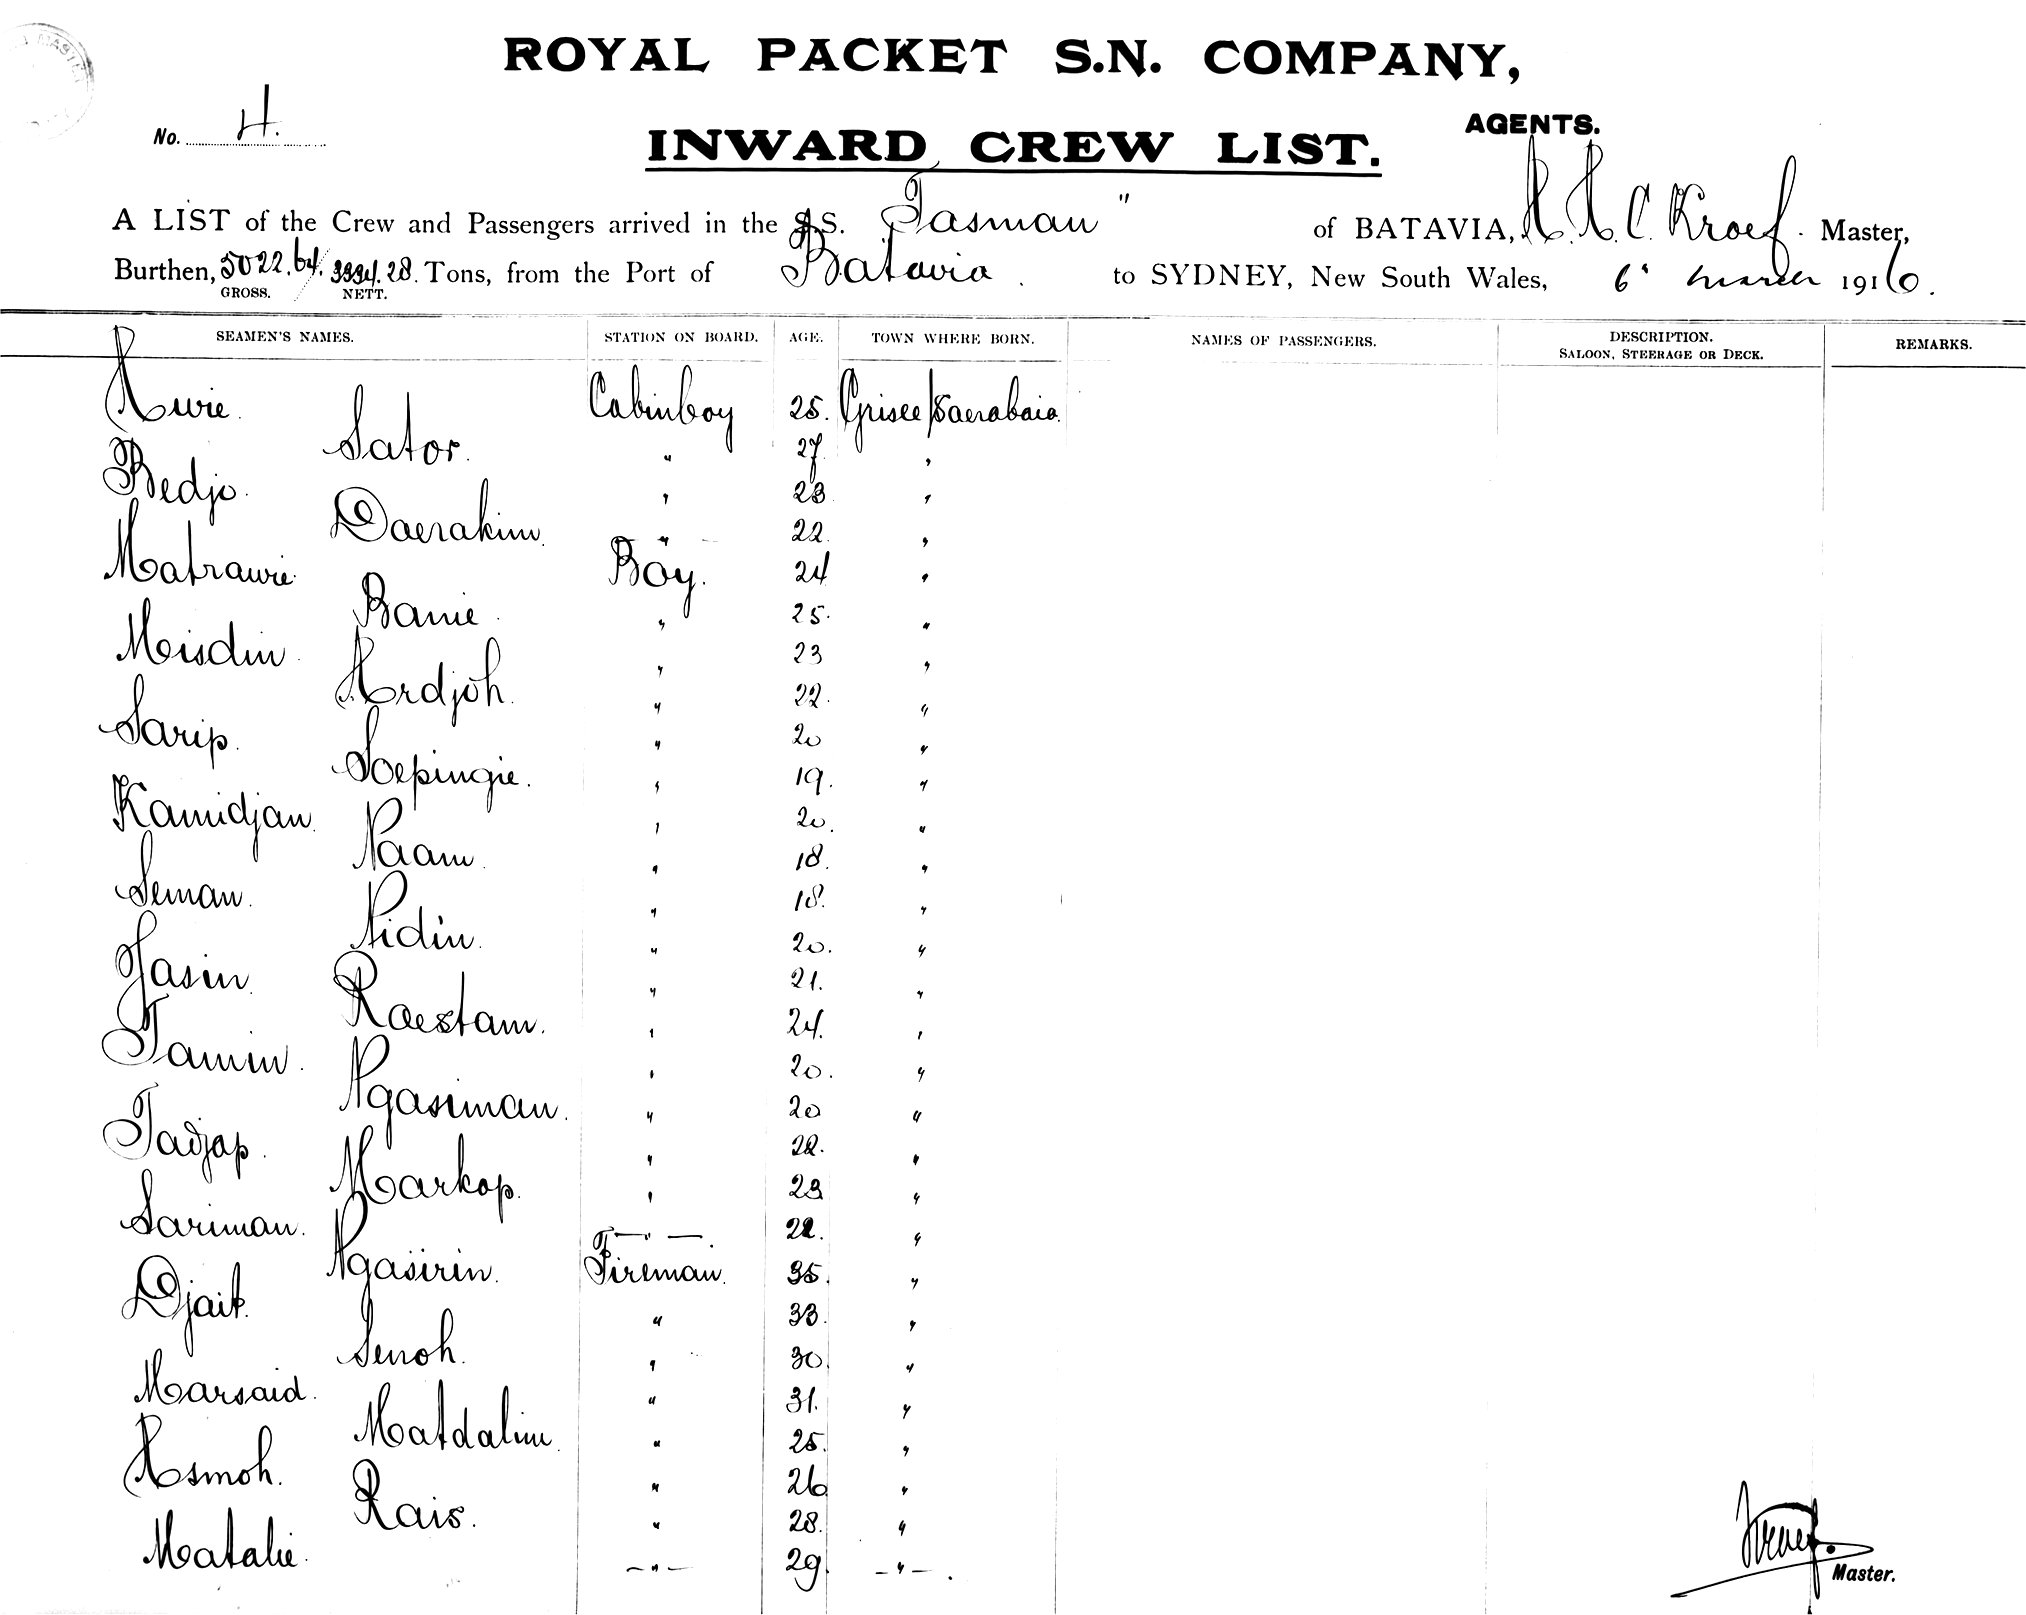 ROYAL PACKET S.N. COMPANY,
AGENTS.
No. H.
INWARD CREW LIST.
A LIST of the Crew and Passengers arrived in the S.S. Tasman" of BATAVIA, A. A. C. Kroef. Master,
Burthen, 5022.64. 3334.28. Tons, from the Port of Batavia. to SYDNEY, New South Wales, 6' march 1916.
GROSS. NETT.
SEAMEN'S NAMES. STATION ON BOARD. AGE. TOWN WHERE BORN. NAMES OF PASSENGERS. DESCRIPTION. SALOON, STEERAGE OR DECK. REMARKS.
Awie. Cabinboy 25. Grisee/Saerabaia.
Sator. " 27 "
Bedjo. " 23 "
Daerakim. " 22. "
Matrawie Boy. 24 "
Banie. " 25. "
Misdin " 23 "
Ardjoh. " 22. "
Sarip. " 20 "
Soepingie. " 19. "
Kamidjan. " 20. "
Naam. " 18. "
Seman. " 18. "
Nidin. " 20. "
Jasin " 21. "
Raestam. " 24. "
Tamin. " 20. "
Ngasiman. " 20 "
Tadjap. " 22. "
Markop. " 23 "
Sariman. — " — 22. "
Ngasirin. Fireman. 35. "
Djait. " 33. "
Senoh. " 30. "
Marsaid. " 31. "
Matdalim. " 25. "
Asmoh. " 26 "
Rais. " 28. "
Matalie. — " — 29. — " — .
Kroef.
Master.